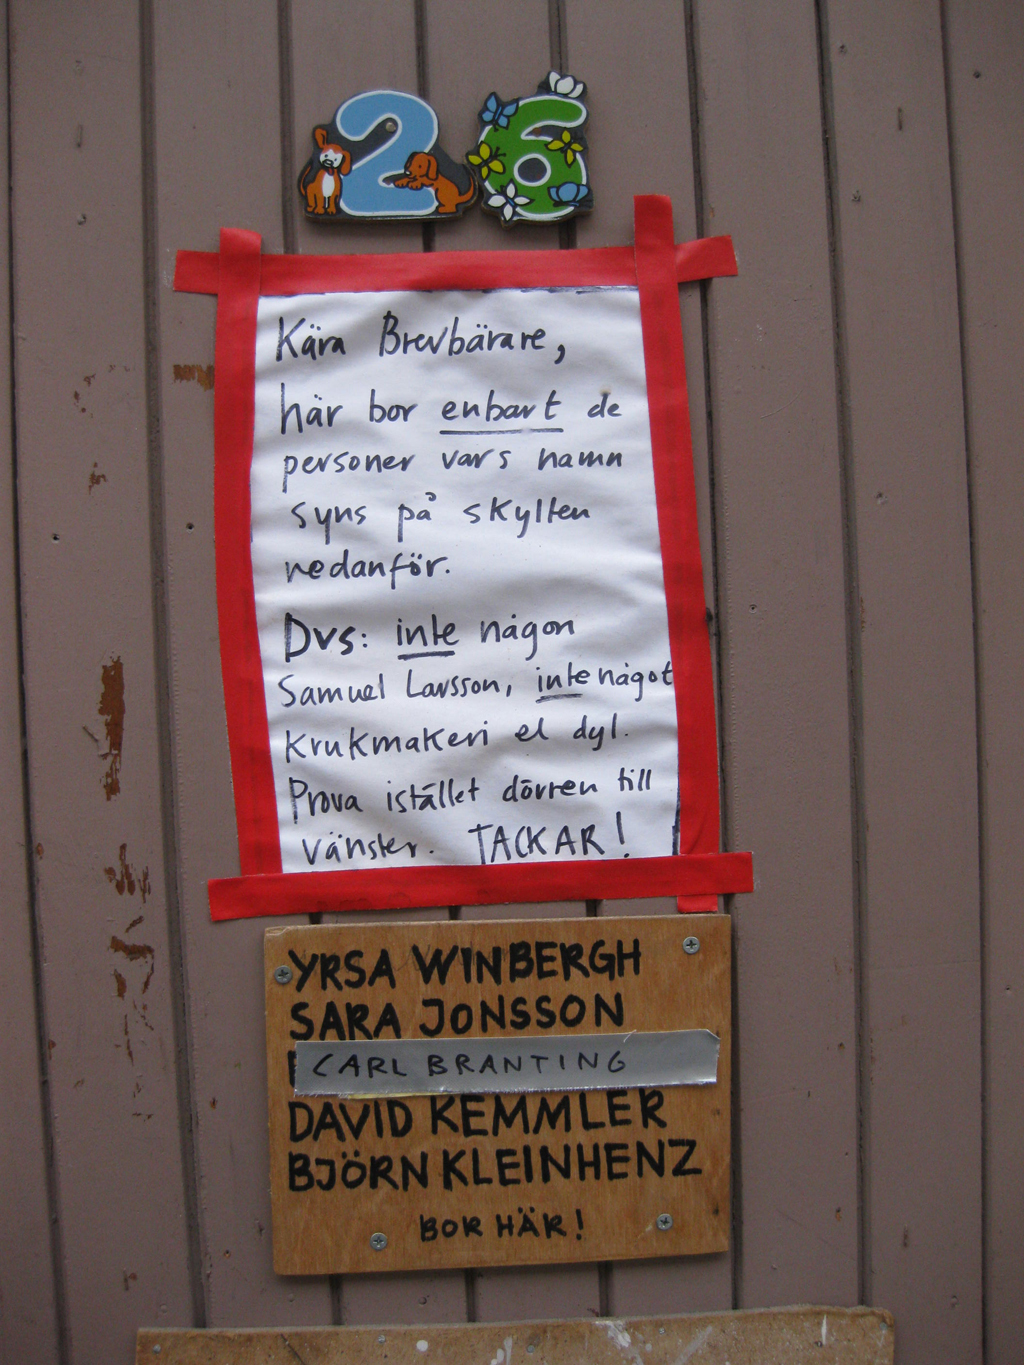 26
Kära Brevbärare,
här bor enbart de
personer vars namn
syns på skylten
nedanför.
Dvs: inte någon
Samuel Larsson, inte något
krukmakeri el dyl.
Prova istället dörren till
vänster. TACKAR!
YRSA WINBERGH
SARA JONSSON
CARL BRANTING
DAVID KEMMLER
BJÖRN KLEINHENZ
BOR HÄR!